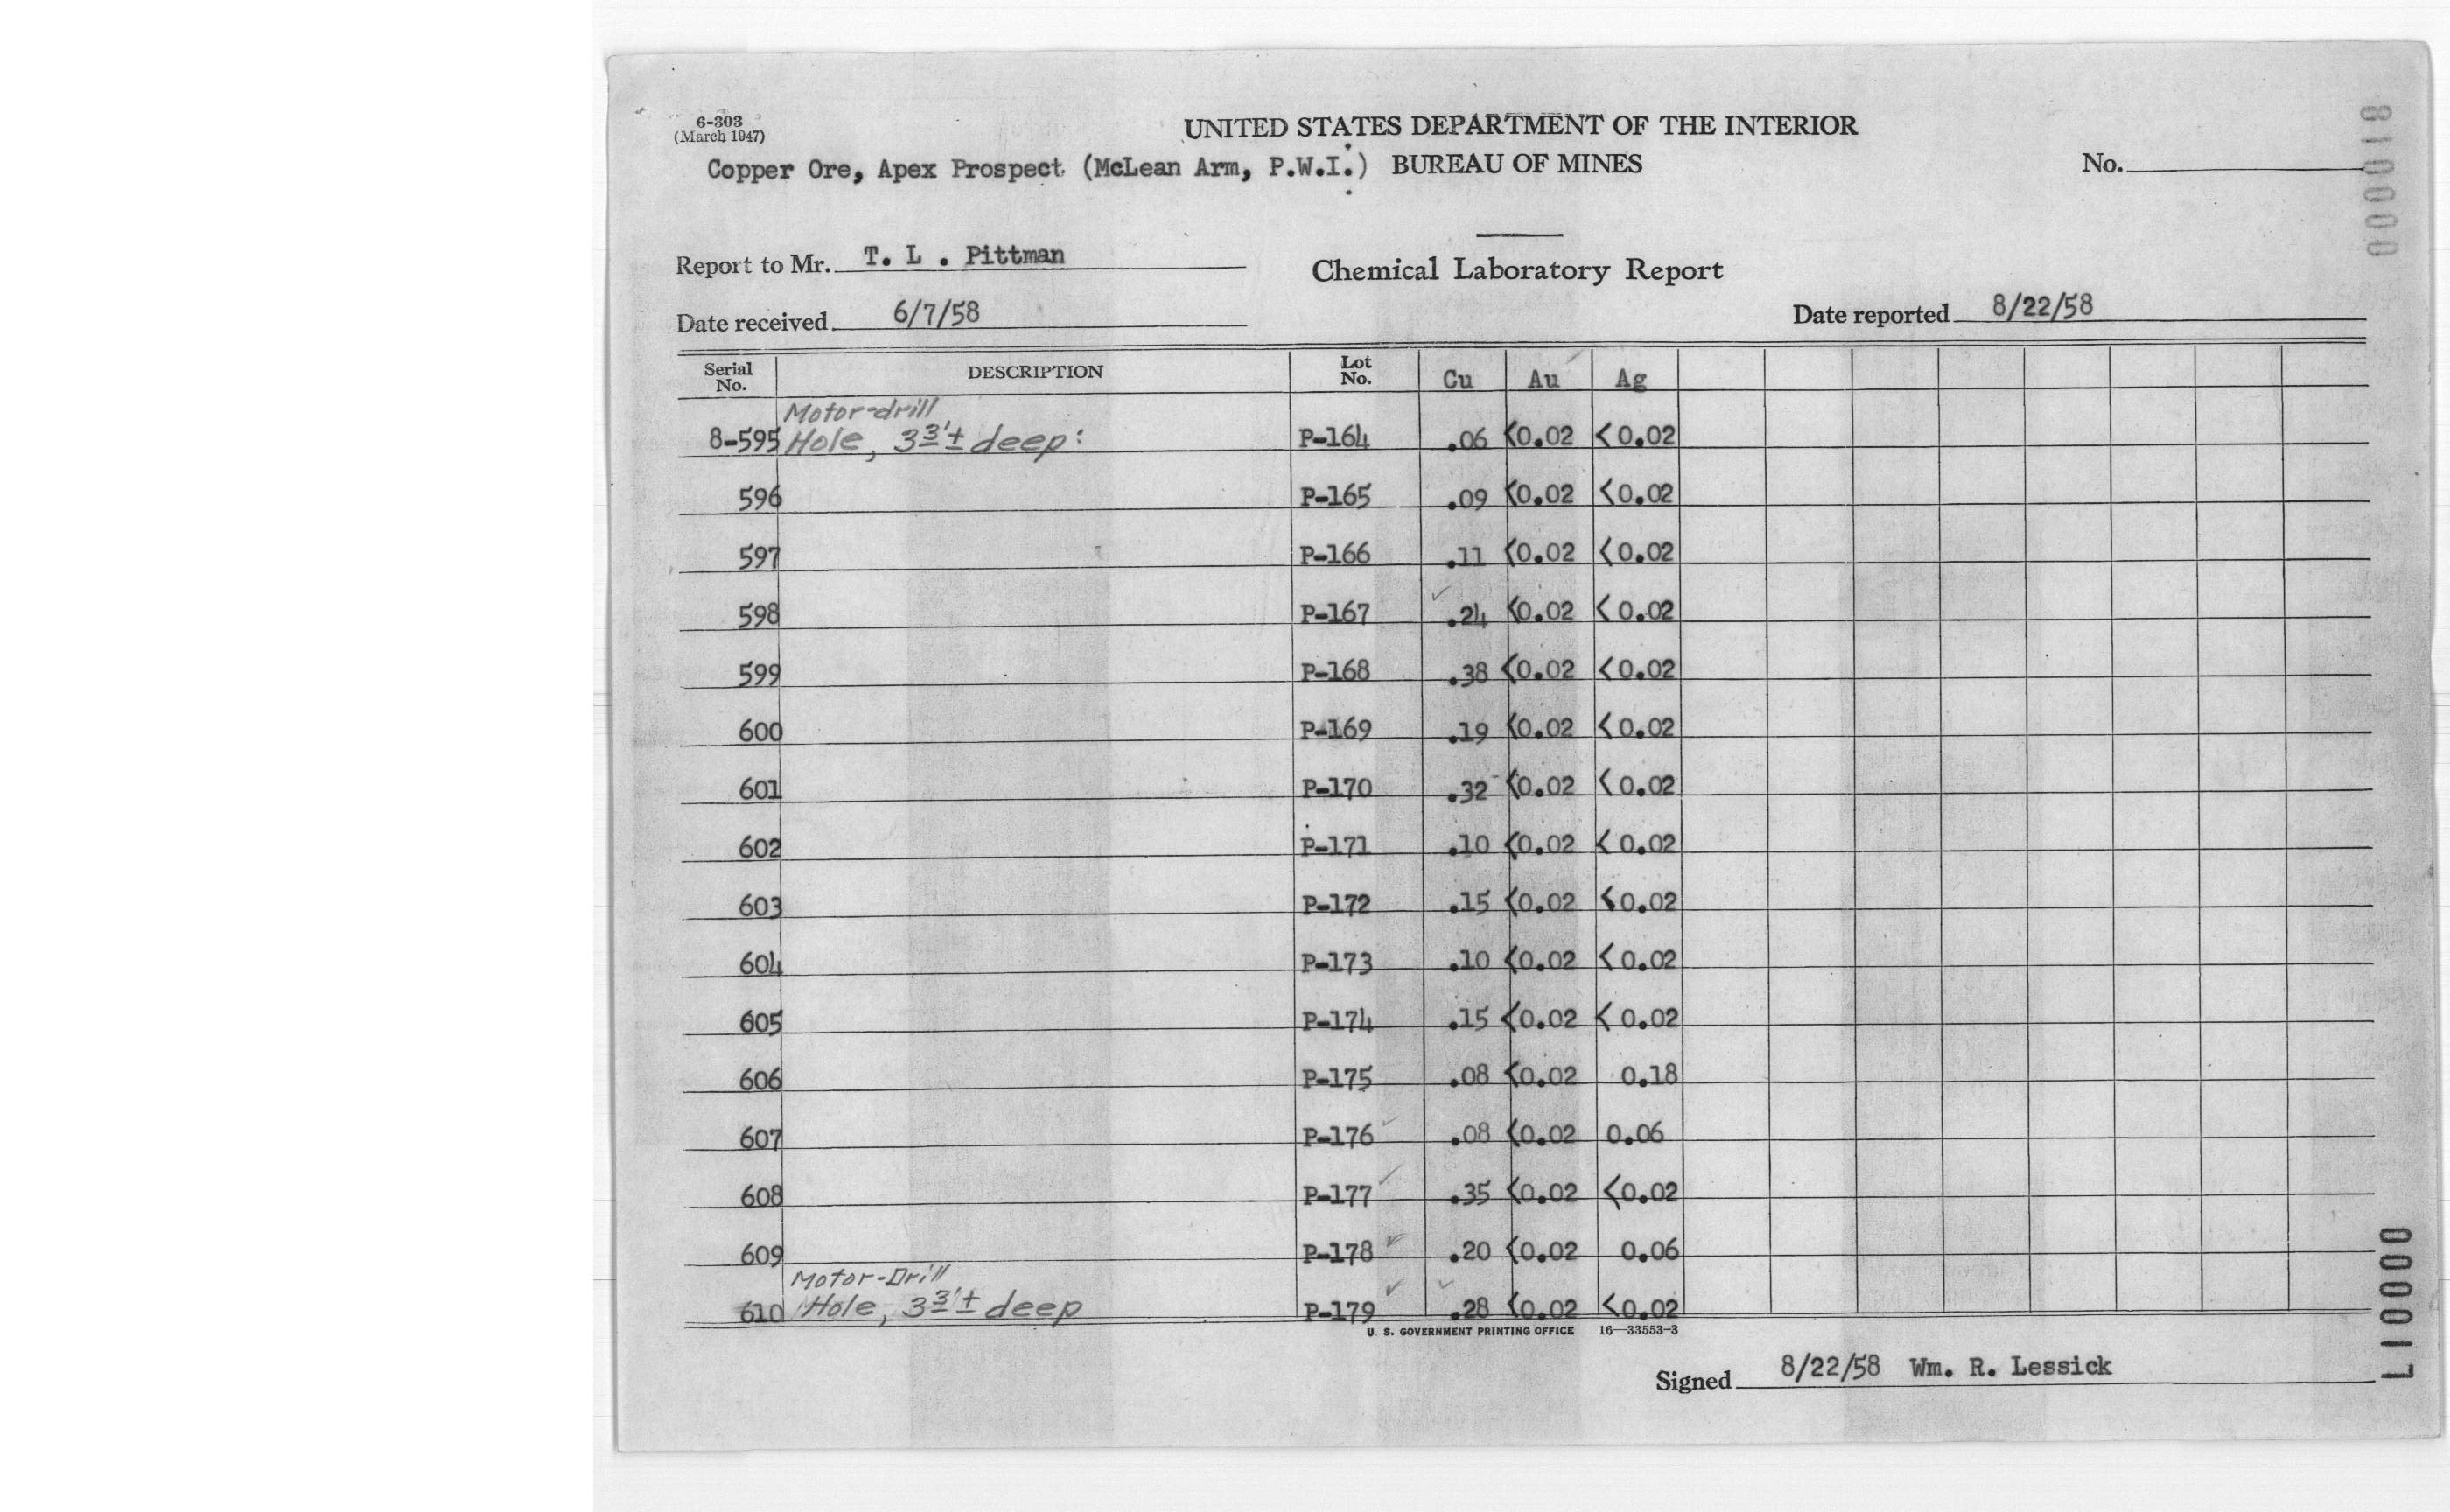 6-303
(March 1947)
UNITED STATES DEPARTMENT OF THE INTERIOR
Copper Ore, Apex Prospect (McLean Arm, P.W.I.) BUREAU OF MINES
No.
810000
Report to Mr. T. L . Pittman
Chemical Laboratory Report
Date received 6/7/58
Date reported 8/22/58
Serial No. DESCRIPTION Lot No. Cu Au Ag
Motor-drill
8-595 Hole, 3 3'± deep: P-164 .06 <0.02 <0.02
596 P-165 .09 <0.02 <0.02
597 P-166 .11 <0.02 <0.02
598 P-167 .24 <0.02 <0.02
599 P-168 .38 <0.02 <0.02
600 P-169 .19 <0.02 <0.02
601 P-170 .32 <0.02 <0.02
602 P-171 .10 <0.02 <0.02
603 P-172 .15 <0.02 <0.02
604 P-173 .10 <0.02 <0.02
605 P-174 .15 <0.02 <0.02
606 P-175 .08 <0.02 0.18
607 P-176 .08 <0.02 0.06
608 P-177 .35 <0.02 <0.02
609 P-178 .20 <0.02 0.06
Motor-Drill
610 Hole, 3 3'± deep P-179 .28 <0.02 <0.02
U. S. GOVERNMENT PRINTING OFFICE 16—33553-3
Signed 8/22/58 Wm. R. Lessick